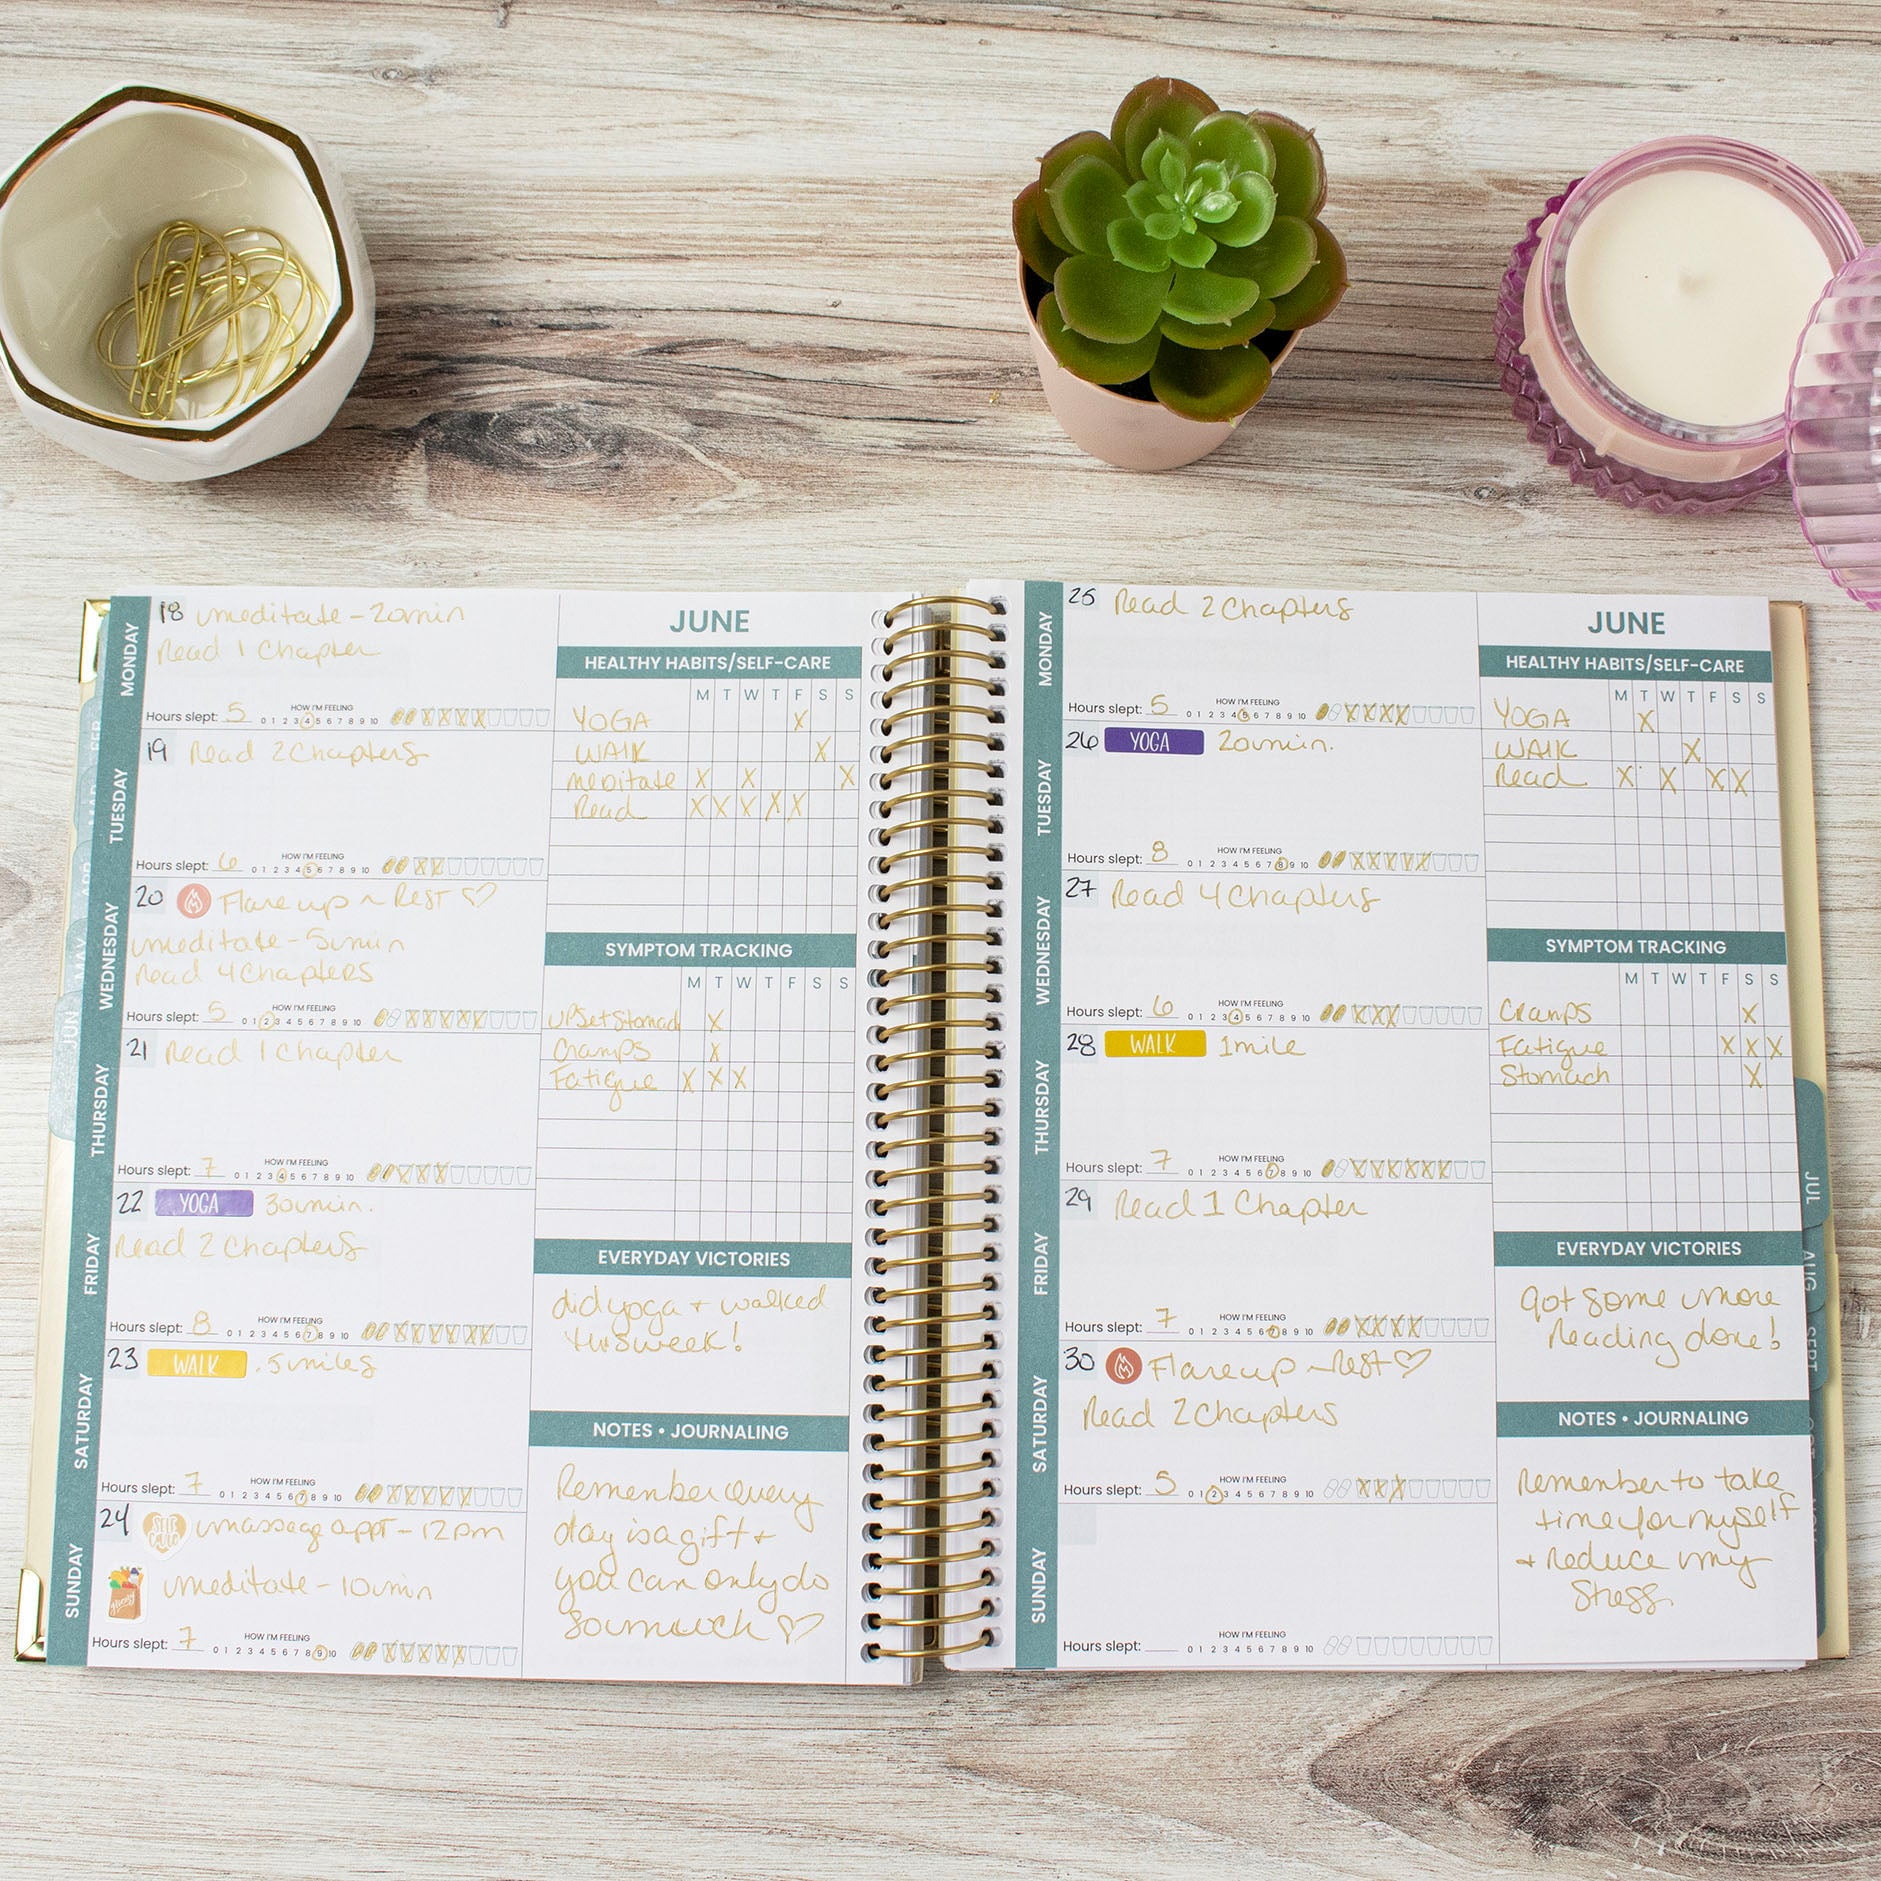 MONDAY
18 meditate - 20min
Read 1 Chapter
Hours slept: 5 HOW I'M FEELING
0 1 2 3 4 5 6 7 8 9 10
TUESDAY
19 Read 2 Chapters
Hours slept: 6 HOW I'M FEELING
0 1 2 3 4 5 6 7 8 9 10
WEDNESDAY
20 Flare up ~ Rest ♡
meditate - 5min
Read 4 Chapters
Hours slept: 5 HOW I'M FEELING
0 1 2 3 4 5 6 7 8 9 10
THURSDAY
21 Read 1 Chapter
Hours slept: 7 HOW I'M FEELING
0 1 2 3 4 5 6 7 8 9 10
FRIDAY
22 YOGA 30min.
Read 2 Chapters
Hours slept: 8 HOW I'M FEELING
0 1 2 3 4 5 6 7 8 9 10
SATURDAY
23 WALK .5 miles
Hours slept: 7 HOW I'M FEELING
0 1 2 3 4 5 6 7 8 9 10
SUNDAY
24 SELF care massage appt - 12pm
grocery meditate - 10min
Hours slept: 7 HOW I'M FEELING
0 1 2 3 4 5 6 7 8 9 10
JUNE
HEALTHY HABITS/SELF-CARE
M T W T F S S
YOGA X
WALK X
meditate X X X
Read X X X X X
SYMPTOM TRACKING
M T W T F S S
Upset Stomach X
Cramps X
Fatigue X X X
EVERYDAY VICTORIES
did yoga + walked
this week!
NOTES • JOURNALING
Remember every
day is a gift +
you can only do
so much ♡
MAR
APR
MAY
JUN
MONDAY
25 Read 2 Chapters
Hours slept: 5 HOW I'M FEELING
0 1 2 3 4 5 6 7 8 9 10
TUESDAY
26 YOGA 20min.
Hours slept: 8 HOW I'M FEELING
0 1 2 3 4 5 6 7 8 9 10
WEDNESDAY
27 Read 4 Chapters
Hours slept: 6 HOW I'M FEELING
0 1 2 3 4 5 6 7 8 9 10
THURSDAY
28 WALK 1 mile
Hours slept: 7 HOW I'M FEELING
0 1 2 3 4 5 6 7 8 9 10
FRIDAY
29 Read 1 Chapter
Hours slept: 7 HOW I'M FEELING
0 1 2 3 4 5 6 7 8 9 10
SATURDAY
30 Flare up ~ Rest ♡
Read 2 Chapters
Hours slept: 5 HOW I'M FEELING
0 1 2 3 4 5 6 7 8 9 10
SUNDAY
Hours slept: HOW I'M FEELING
0 1 2 3 4 5 6 7 8 9 10
JUNE
HEALTHY HABITS/SELF-CARE
M T W T F S S
YOGA X
WALK X
Read X X X X
SYMPTOM TRACKING
M T W T F S S
Cramps X
Fatigue X X X
Stomach X
EVERYDAY VICTORIES
Got some more
reading done!
NOTES • JOURNALING
Remember to take
time for myself
+ Reduce my
Stress
JUL
AUG
SEPT